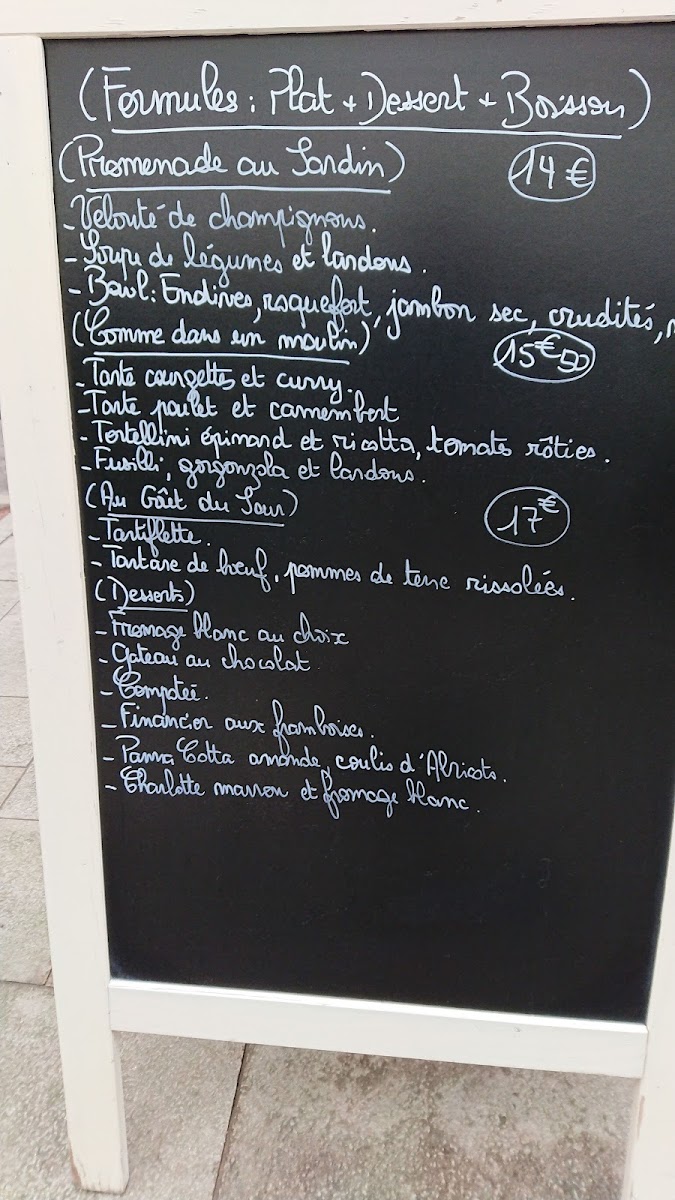 (Formules : Plat + Dessert + Boisson)
(Promenade au Jardin) 14 €
- Velouté de champignons.
- Soupe de légumes et lardons.
- Bowl : Endives, roquefort, jambon sec, crudités,
(Comme dans un moulin) 15€50
- Tarte courgettes et curry.
- Tarte poulet et camembert
- Tortellini épinard et ricotta, tomates rôties.
- Fusilli, gorgonzola et lardons.
(Au Goût du Jour) 17€
- Tartiflette.
- Tartare de bœuf, pommes de terre rissolées.
(Desserts)
- Fromage blanc au choix
- Gateau au chocolat
- Compotée.
- Financier aux framboises.
- Panna Cotta amande, coulis d'Abricots.
- Charlotte marron et fromage blanc.